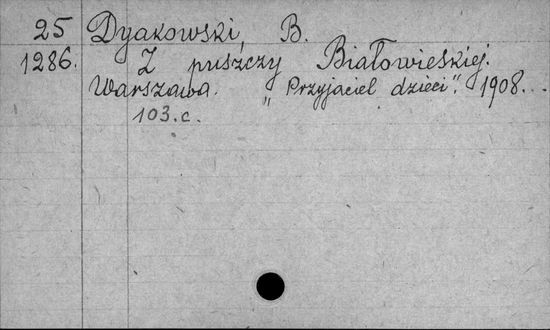 25 Dyakowski, B.
1286. Z puszczy Białowieskiej.
Warszawa. "Przyjaciel dzieci". 1908...
103.c.